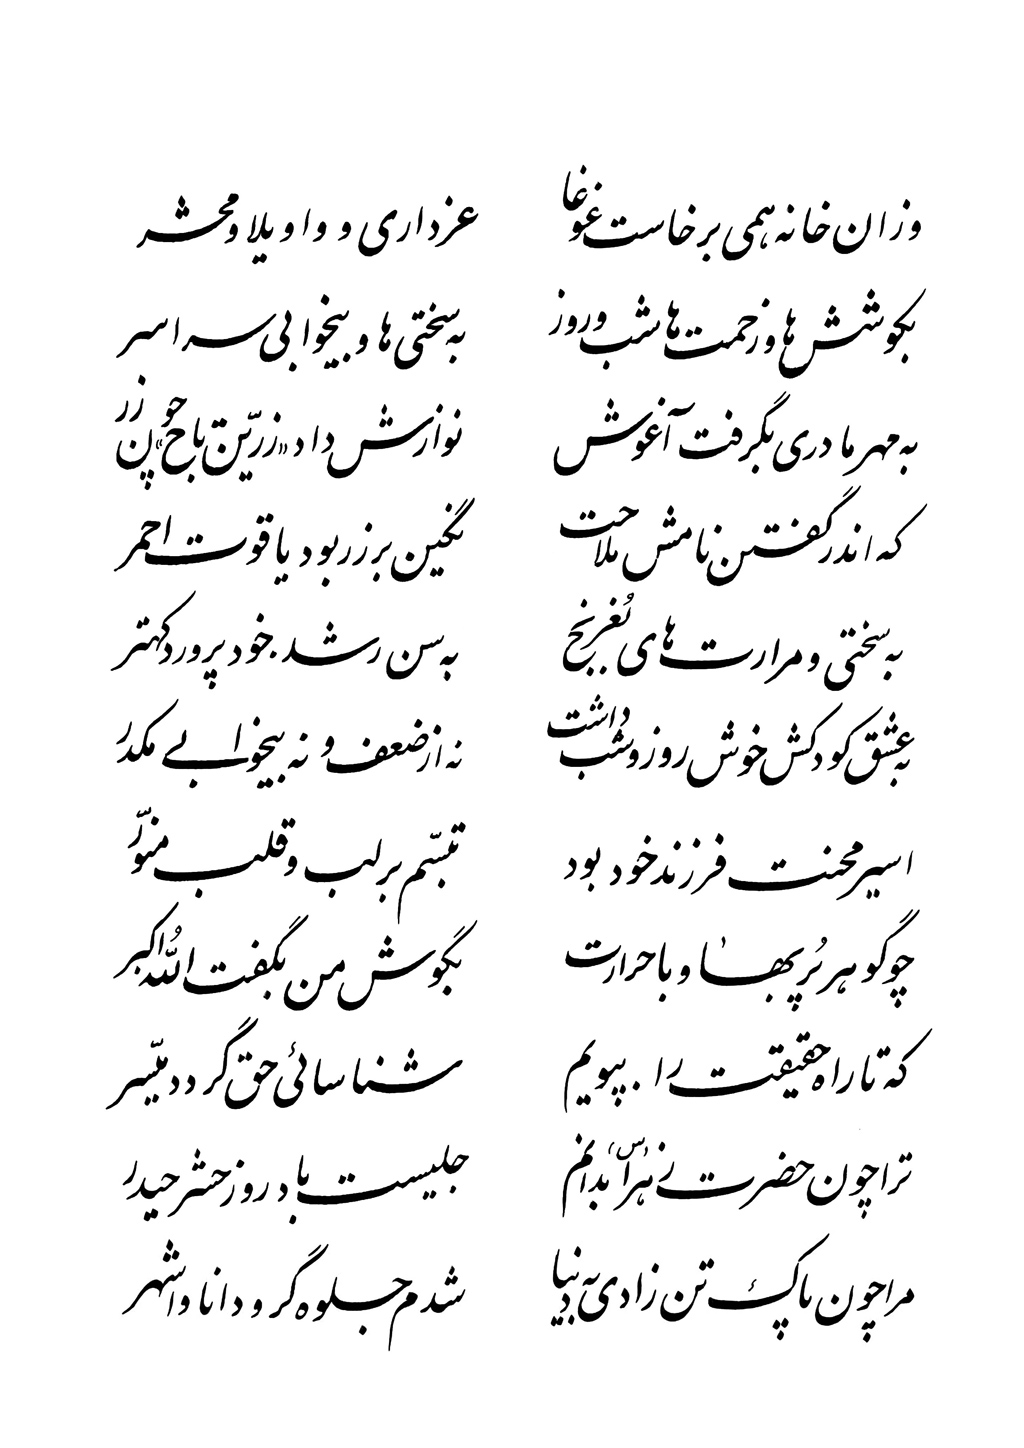 وزان خانه همی برخاست غوغا عزداری و واویلا و محشر
بکوشش ها و زحمت ها شب و روز به سختی ها و بیخوابی سراسر
به مهر مادری بگرفت آغوش نوازش داد «زرّین تاج» چون زر
که اندر گفتن نامش ملاحت نگین بر زر بود یاقوت احمر
به سختی و مرارت های بُغرنج به سن رشد خود پرورد کهتر
به عشق کودکش خوش روز و شب داشت نه از ضعف و نه بیخوابی مکدر
اسیر محنت فرزند خود بود تبسّم بر لب و قلب منوّر
چو گوهر پُر بها و با حرارت بگوش من بگفت اللّه اکبر
که تا راه حقیقت را بپویم شناسائی حق گردد میّسر
ترا چون حضرت زهرا (س) بدانم جلیست باد روز حشر حیدر
مرا چون پاک تن زادی به دنیا شدم جلوه گر و دانا و اشهر